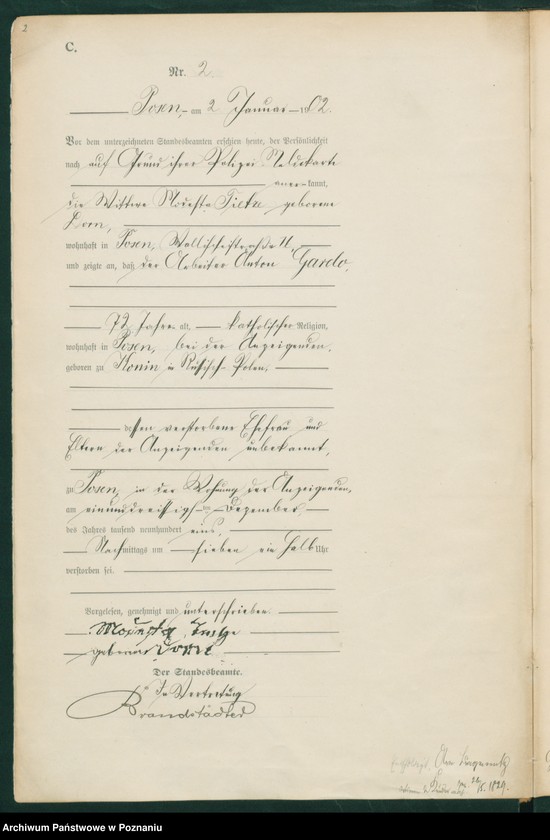 2
C.
Nr. 2
Posen, am 2 Januar 1902.
Vor dem unterzeichneten Standesbeamten erschien heute, der Persönlichkeit
nach auf Grund ihrer Polizei-Meldekarte
anerkannt,
die Wittwe Modesta Tietze geborene
Dorn,
wohnhaft in Posen, Wallischeistraße 11,
und zeigte an, daß der Arbeiter Anton Gardo,
72 Jahre alt, katholischer Religion,
wohnhaft in Posen, bei der Anzeigenden,
geboren zu Konin in Russisch-Polen,
dessen verstorbene Ehefrau und
Eltern der Anzeigenden unbekannt,
zu Posen, in der Wohnung der Anzeigenden,
am einunddreissigsten Dezember
des Jahres tausend neunhundert eins,
Nachmittags um sieben ein halb Uhr
verstorben sei.
Vorgelesen, genehmigt und unterschrieben
geborene
Der Standesbeamte.
In Vertretung
Brandstädter
1829.
Archiwum Państwowe w Poznaniu